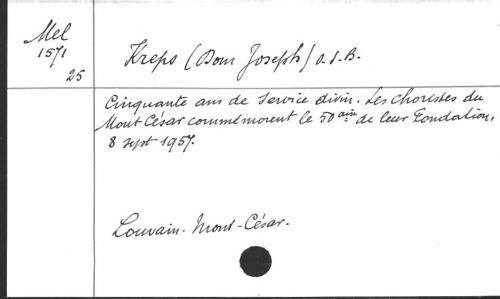 Mel
1571
25
Kreps (Dom Joseph) O.S.B.
Cinquante ans de Service divin. Les Choristes du
Mont César commémorent le 50 aire de leur Fondation,
8 sept 1957.
Louvain. Mont-César.